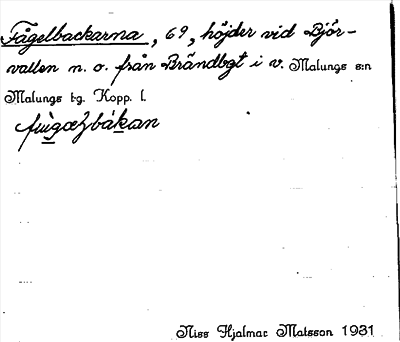 Fågelbackarna, 69, höjder vid Björ-
vallen n. o. från Brändbgt i v. Malungs s:n
Malungs tg. Kopp. l.
Niss Hjalmar Matsson 1931